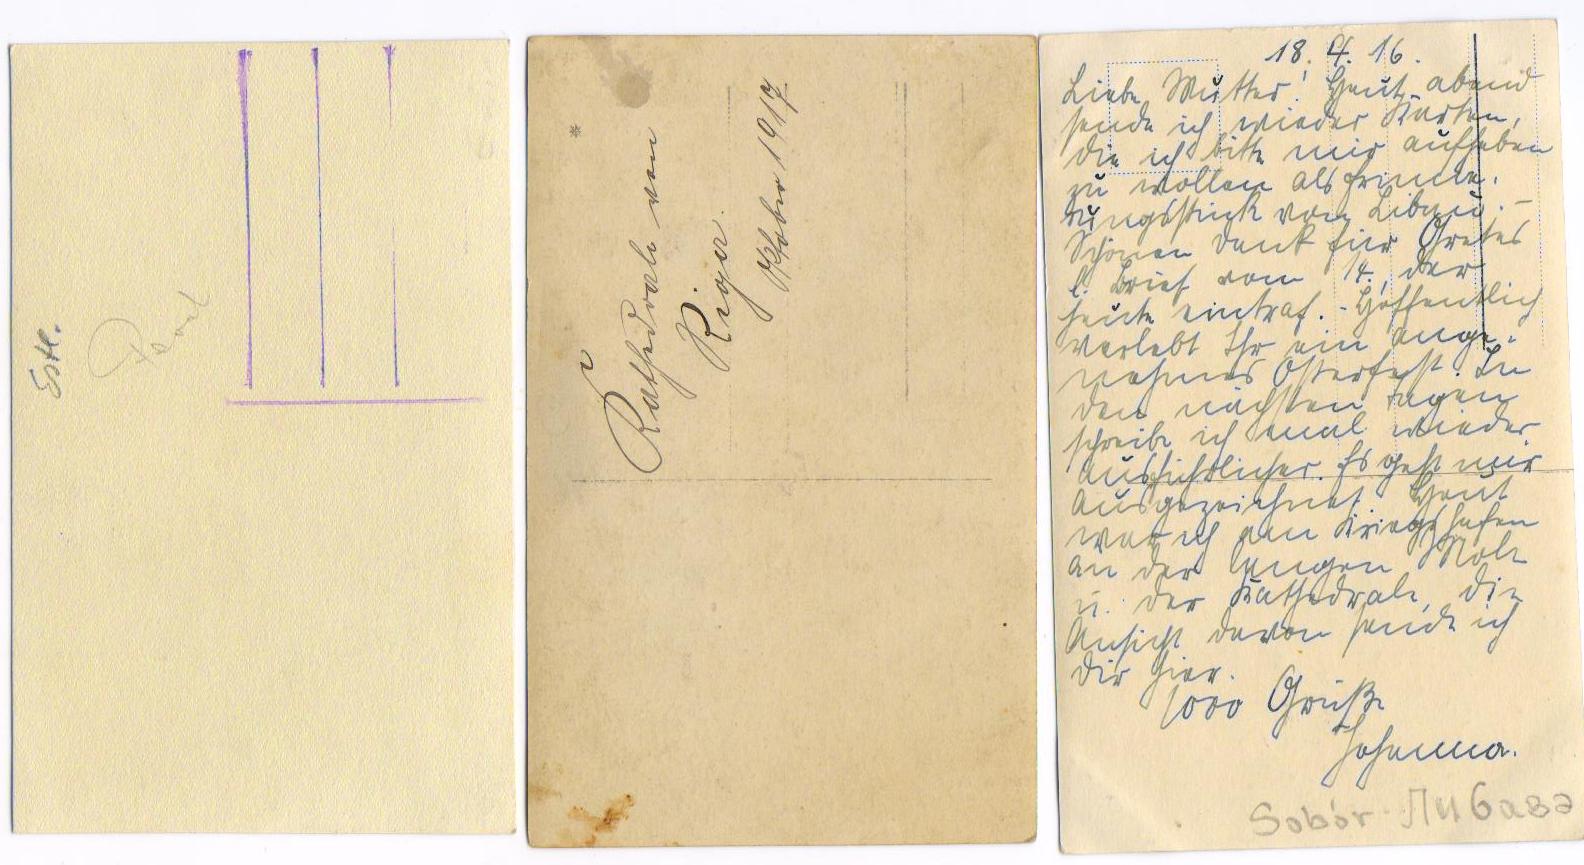 Estl.
Kathedrale von
Riga.
Oktober 1917
18. 4. 16.
Liebe Mutter! Heut abend
sende ich wieder Karten,
die ich bitte mir aufheben
zu wollen als Erinne-
rungsstück von Libau. –
Schönen Dank für Gretes
l. Brief vom 14. der
heute eintraf. - Hoffentlich
verlebt Ihr ein ange-
nehmes Osterfest. In
den nächsten Tagen
schreibe ich mal wieder
ausführlicher. Es geht mir
ausgezeichnet. Heut
war ich am Kriegshafen
an der langen Mole
u. der Kathedrale, die
Ansicht davon sende ich
dir hier.
1000 Grüße
Johanna.
Sobór Либава